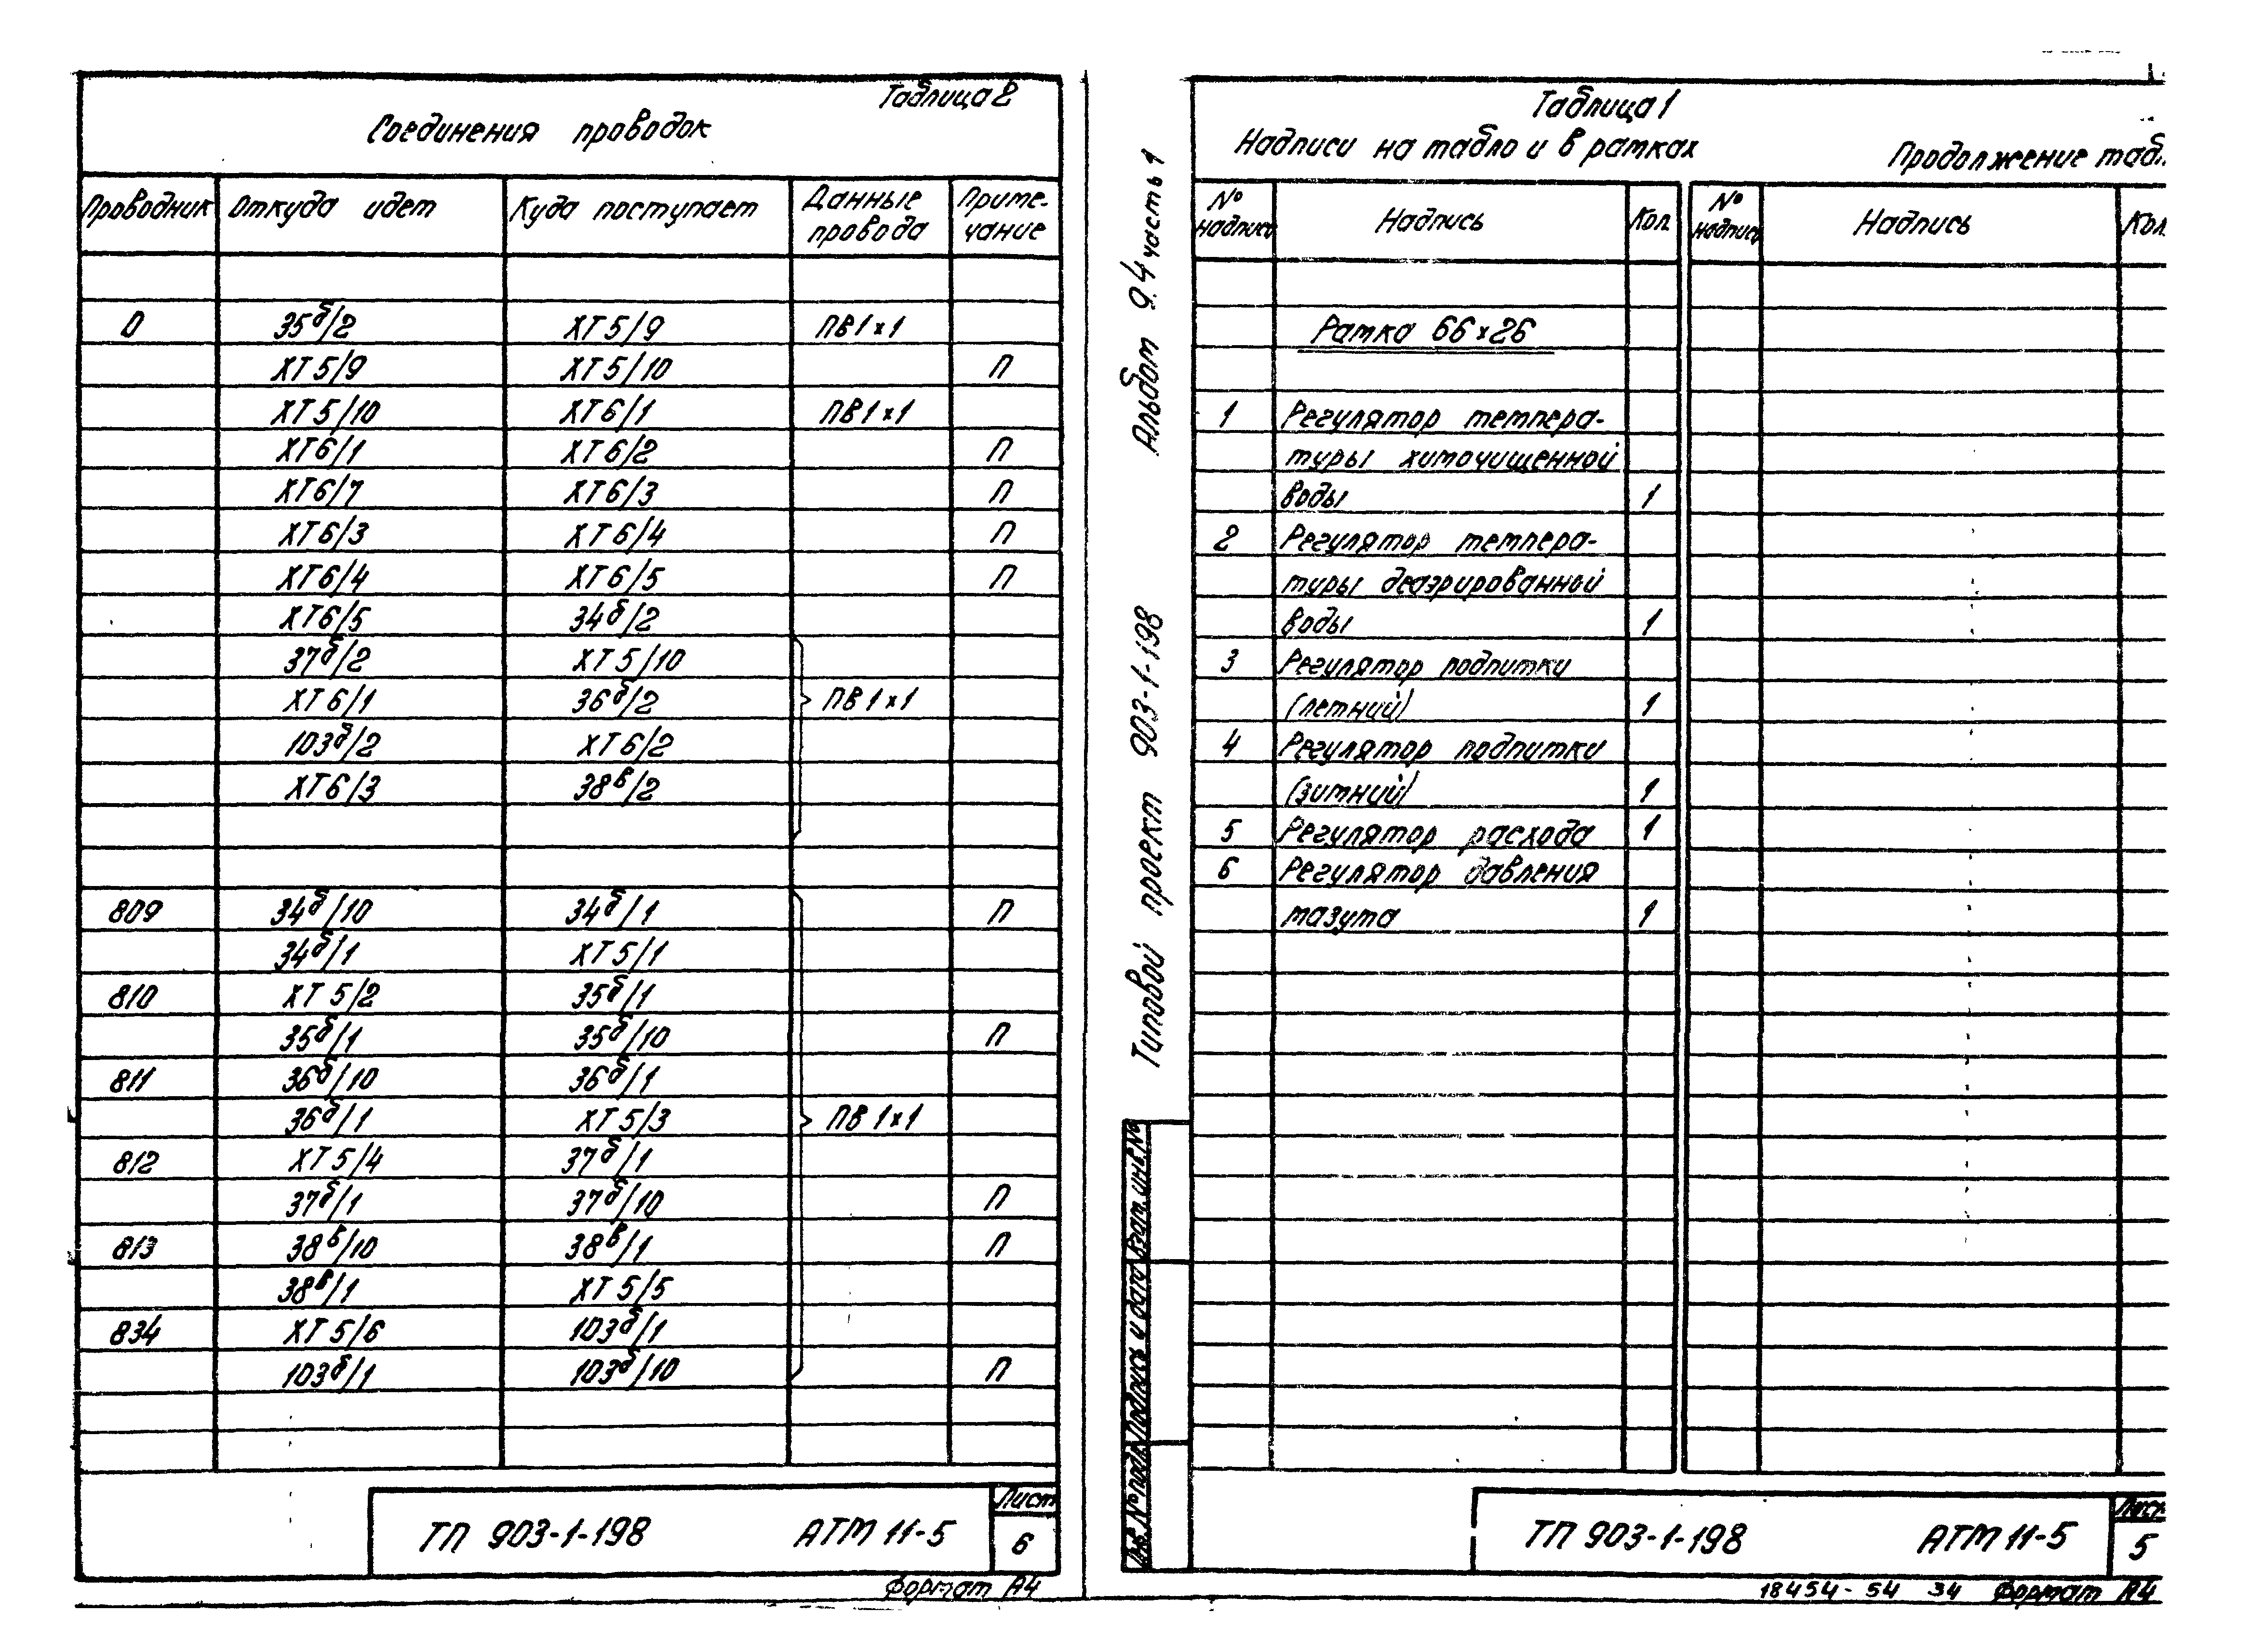 Таблица 2
Соединения проводок
Проводник Откуда идет Куда поступает Данные провода Приме-чание
0 35б/2 ХТ5/9 ПВ1х1
ХТ5/9 ХТ5/10 П
ХТ5/10 ХТ6/1 ПВ1х1
ХТ6/1 ХТ6/2 П
ХТ6/7 ХТ6/3 П
ХТ6/3 ХТ6/4 П
ХТ6/4 ХТ6/5 П
ХТ6/5 34б/2
37б/2 ХТ5/10
ХТ6/1 36б/2 ПВ1х1
103б/2 ХТ6/2
ХТ6/3 38в/2
809 34б/10 34б/1 П
34б/1 ХТ5/1
810 ХТ5/2 35б/1
35б/1 35б/10 П
811 36б/10 36б/1
36б/1 ХТ5/3 ПВ1х1
812 ХТ5/4 37б/1
37б/1 37б/10 П
813 38в/10 38в/1 П
38в/1 ХТ5/5
834 ХТ5/6 103б/1
103б/1 103б/10 П
ТП 903-1-198 АТМ 11-5
Лист
6
Формат А4
Типовой проект 903-1-198 Альбом 9.4 часть 1
Таблица 1
Надписи на табло и в рамках
Продолжение табл.
№ надписи Надпись Кол. № надписи Надпись Кол.
Рамка 66х26
1 Регулятор темпера-
туры химочищенной
воды 1
2 Регулятор темпера-
туры деаэрированной
воды 1
3 Регулятор подпитки
(летний) 1
4 Регулятор подпитки
(зимний) 1
5 Регулятор расхода 1
6 Регулятор давления
мазута 1
Инв. № подл. Подпись и дата Взам. инв. №
ТП 903-1-198 АТМ 11-5
Лист
5
18454-54 34 Формат А4